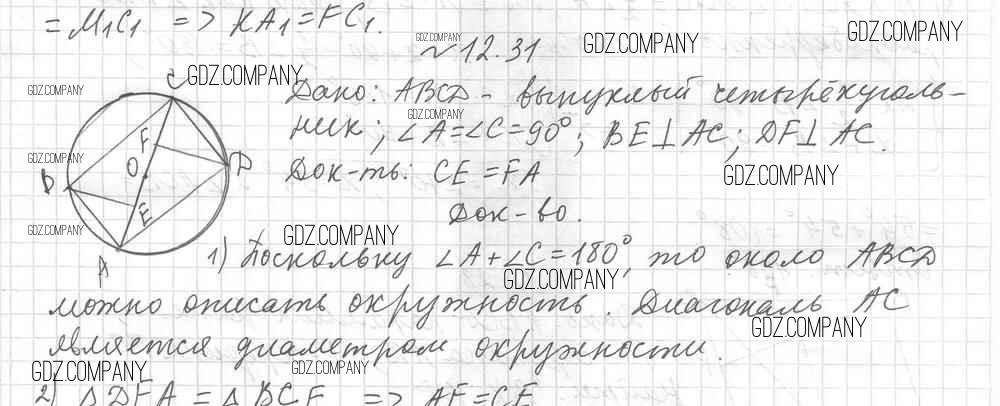 = M₁C₁ => KA₁ = FC₁.
~ 12.31
GDZ.COMPANY
GDZ.COMPANY
GDZ.COMPANY
GDZ.COMPANY
GDZ.COMPANY
Дано: ABCD - выпуклый четырёхуголь-
GDZ.COMPANY
ник; ∠A=∠C=90°; BE⊥AC; DF⊥AC.
GDZ.COMPANY
Док-ть: CE = FA
GDZ.COMPANY
Док-во.
C
F
O
D
B
E
A
GDZ.COMPANY
GDZ.COMPANY
1) Поскольку ∠A+∠C=180°, то около ABCD
GDZ.COMPANY
можно описать окружность. Диагональ AC
GDZ.COMPANY
является диаметром окружности.
GDZ.COMPANY
GDZ.COMPANY
2) △DFA = △BCE => AF=CE